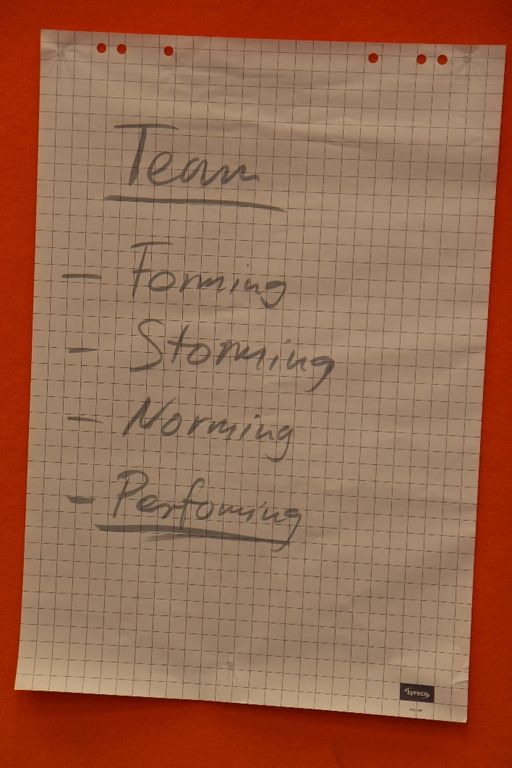 Team
- Forming
- Storming
- Norming
- Perfoming
Lyreco